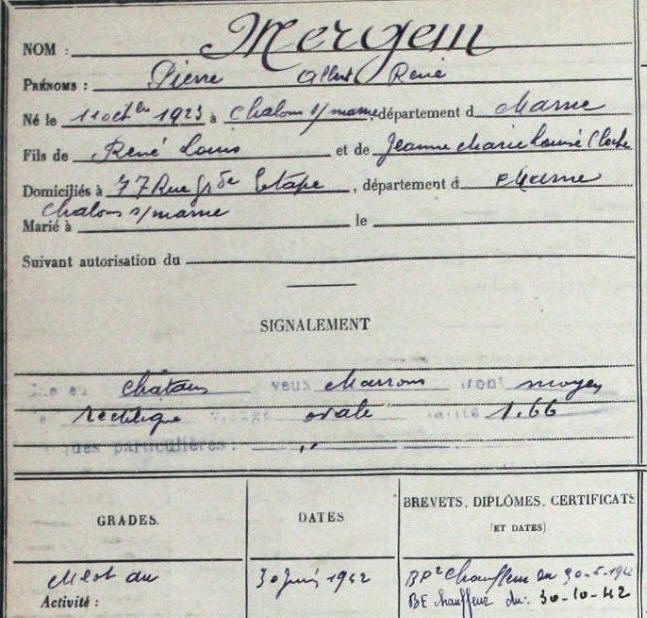 NOM : Mergem
PRÉNOMS : Pierre Albert René
Né le 11 octbre 1923 à Chalons s/marne, département d Marne
Fils de René Louis et de Jeanne Marie Louise Cloche
Domiciliés à 77 Rue Gde Etape, département d Marne
Chalons s/marne
Marié à le
Suivant autorisation du
SIGNALEMENT
châtains yeux Marrons front moyen
rectiligne visage ovale taille 1.66
particulières : "
GRADES. DATES BREVETS, DIPLÔMES, CERTIFICATS
(ET DATES)
Melot du 30 Juin 1942 BP2 Chauffeur du
Activité : BE chauffeur du: 30-10-42